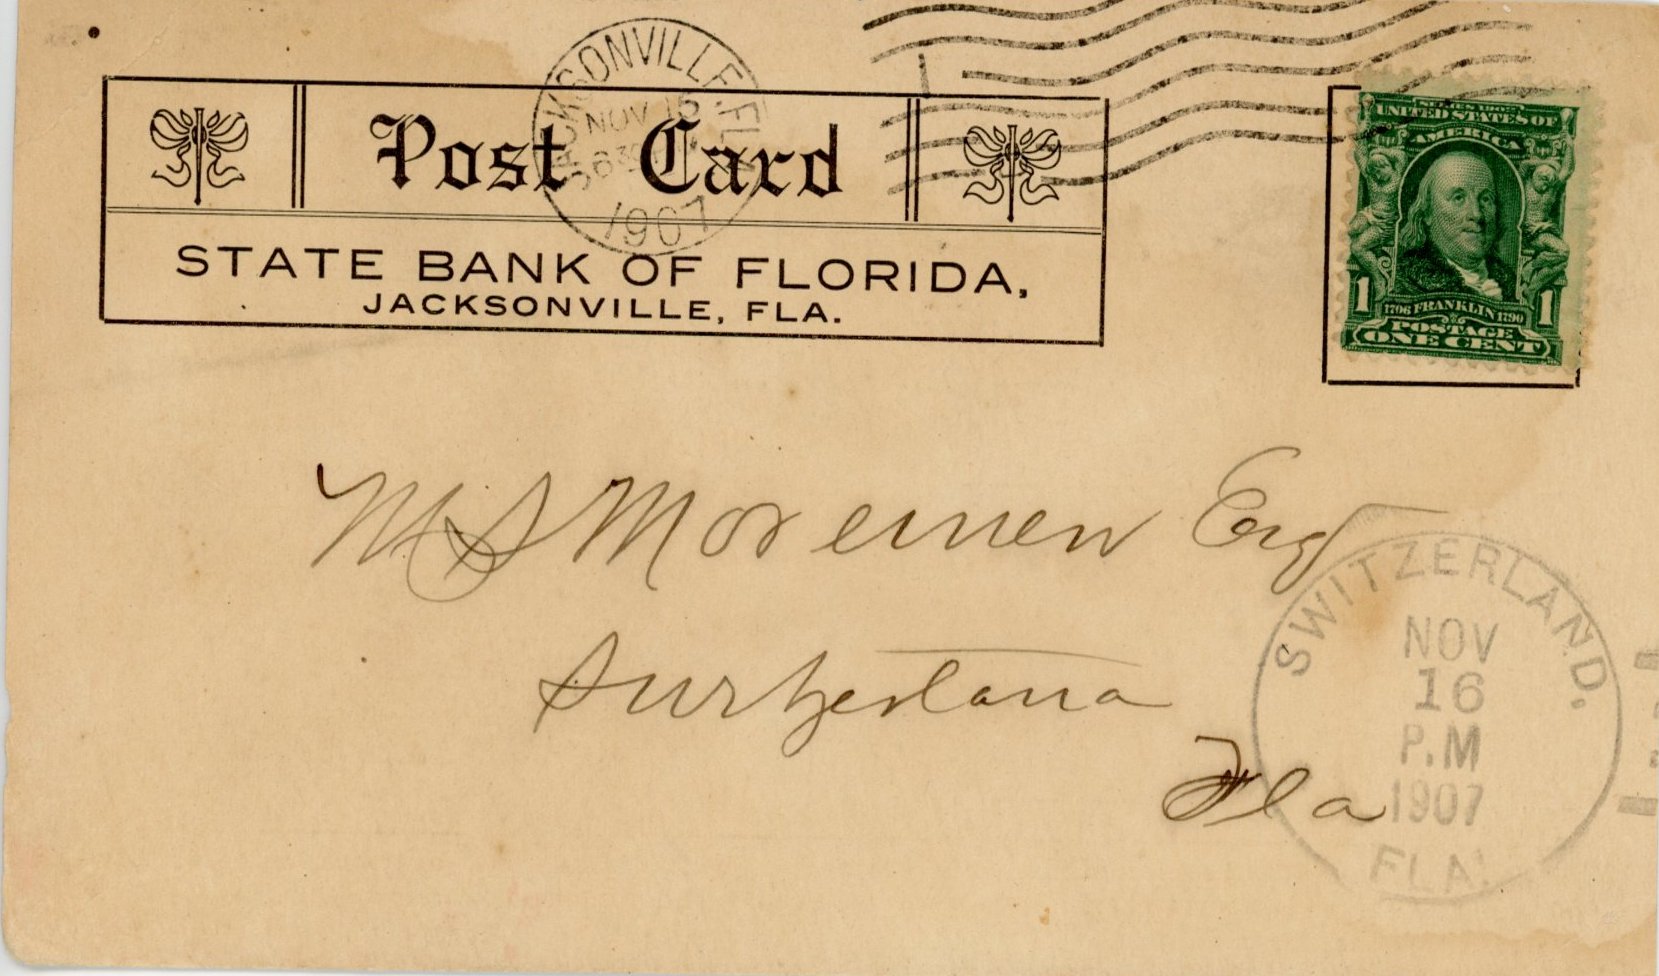 JACKSONVILLE, FLA.
NOV 16
630
1907
Post Card
STATE BANK OF FLORIDA,
JACKSONVILLE, FLA.
SERIES 1902
UNITED STATES OF
AMERICA
1 1706 FRANKLIN 1790 1
POSTAGE
ONE CENT
M S Esq
Switzerland
Fla
SWITZERLAND.
NOV
16
P.M
1907
FLA.